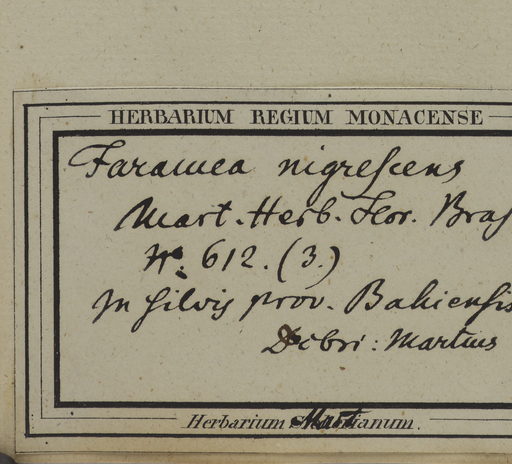 HERBARIUM REGIUM MONACENSE
Faramea nigrescens
Mart. Herb. Flor. Bras
N. 612. (3.)
In silvis prov. Bahiensis
Martius
Herbarium Martianum.